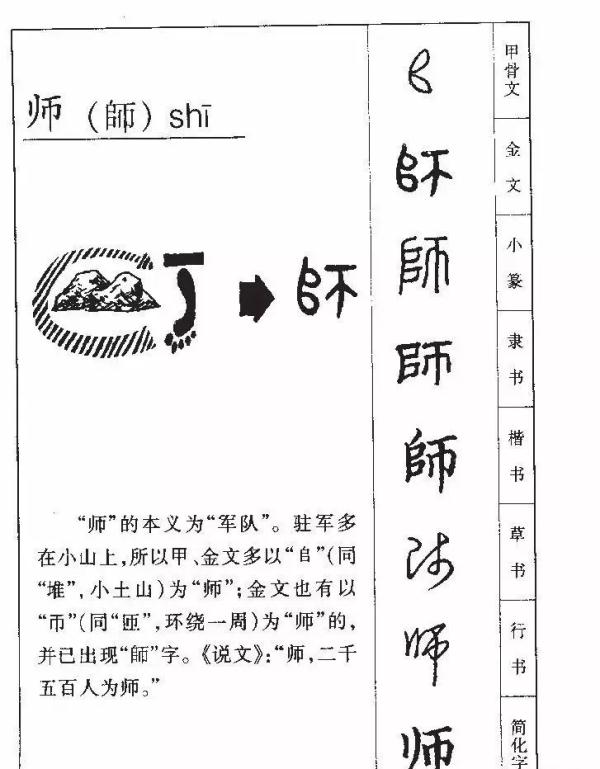 师（師）shī
師
“师”的本义为“军队”。驻军多
在小山上，所以甲、金文多以“𠂤”（同
“堆”，小土山）为“师”；金文也有以
“帀”（同“匝”，环绕一周）为“师”的，
并已出现“師”字。《说文》：“师，二千
五百人为师。”
𠂤 甲骨文
師 金文
師 小篆
師 隶书
師 楷书
师 草书
师 行书
师 简化字